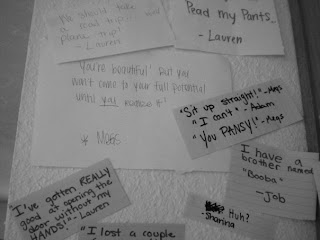 We should take
a road trip!!
plane trip!"
- Lauren
Read my Pants..
- Lauren
You're beautiful! But you
won't come to your full potential
until you realize it!
* Megs
"Sit up straight!" - Megs
"I can't" - Adam
"You PANSY!" - Megs
I have a
brother named
"Booba"
- Job
"I've gotten REALLY
good at opening the
door without my
HANDS!" - Lauren
Huh?
- Sharing
"I lost a couple